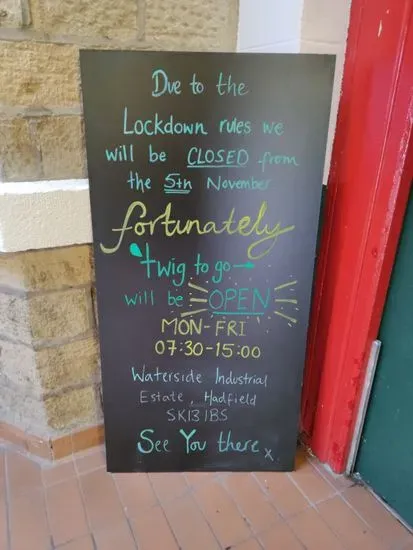 Due to the
Lockdown rules we
will be CLOSED from
the 5th November
fortunately
twig to go →
will be OPEN
MON-FRI
07:30-15:00
Waterside Industrial
Estate, Hadfield
SK13 1BS
See You there x